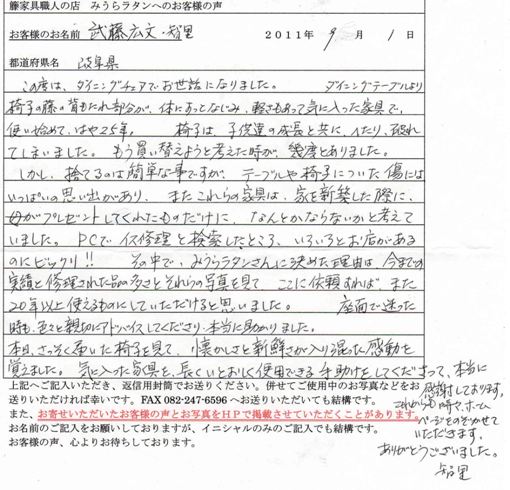 籐家具職人の店　みうらラタンへのお客様の声
お客様のお名前　武藤宏文・智里　2011年　9　月　1　日
都道府県名　岐阜県
この度は、ダイニングチェアでお世話になりました。　ダイニングテーブルより
椅子の籐の背もたれ部分が、体にあってなじみ、軽さもあって気に入った家具で、
使い始めて、はや25年。　椅子は、子供達の成長と共に、いたり、破れ
てしまいました。もう買い替えようと考えた時が、幾度とありました。
しかし、捨てるのは簡単な事ですが、テーブルや椅子についた傷には
いっぱいの思い出があり、またこれらの家具は、家を新築した際に、
母がプレゼントしてくれたものだけに、なんとかならないかと考えて
いました。PCでイス修理と検索したところ、いろいろとお店がある
のにビックリ!!　その中で、みうらラタンさんに決めた理由は、今までの
実績と修理された品の多さとそれらの写真を見て　ここに依頼すれば、また
20年以上使えるものにしていただけると思いました。　座面で迷った
時も、色々と親切にアドバイスしてくださり、本当に助かりました。
本日、さっそく届いた椅子を見て、懐かしさと新鮮さが入り混った感動を
覚えました。気に入った家具を、長くいとおしく使用できる手助けをしてくださって、本当に
感謝しております。
これからも時々、ホーム
ページをのぞかせて
いただきます。
ありがとうございました。
智里
上記へご記入いただき、返信用封筒でお送りください。併せてご使用中のお写真などをお
送りいただければ幸いです。FAX 082-247-6596 へお送りいただいても結構です。
また、お寄せいただいたお客様の声とお写真をＨＰで掲載させていただくことがあります。
お名前のご記入をお願いしておりますが、イニシャルのみのご記入でも結構です。
お客様の声、心よりお待ちしております。